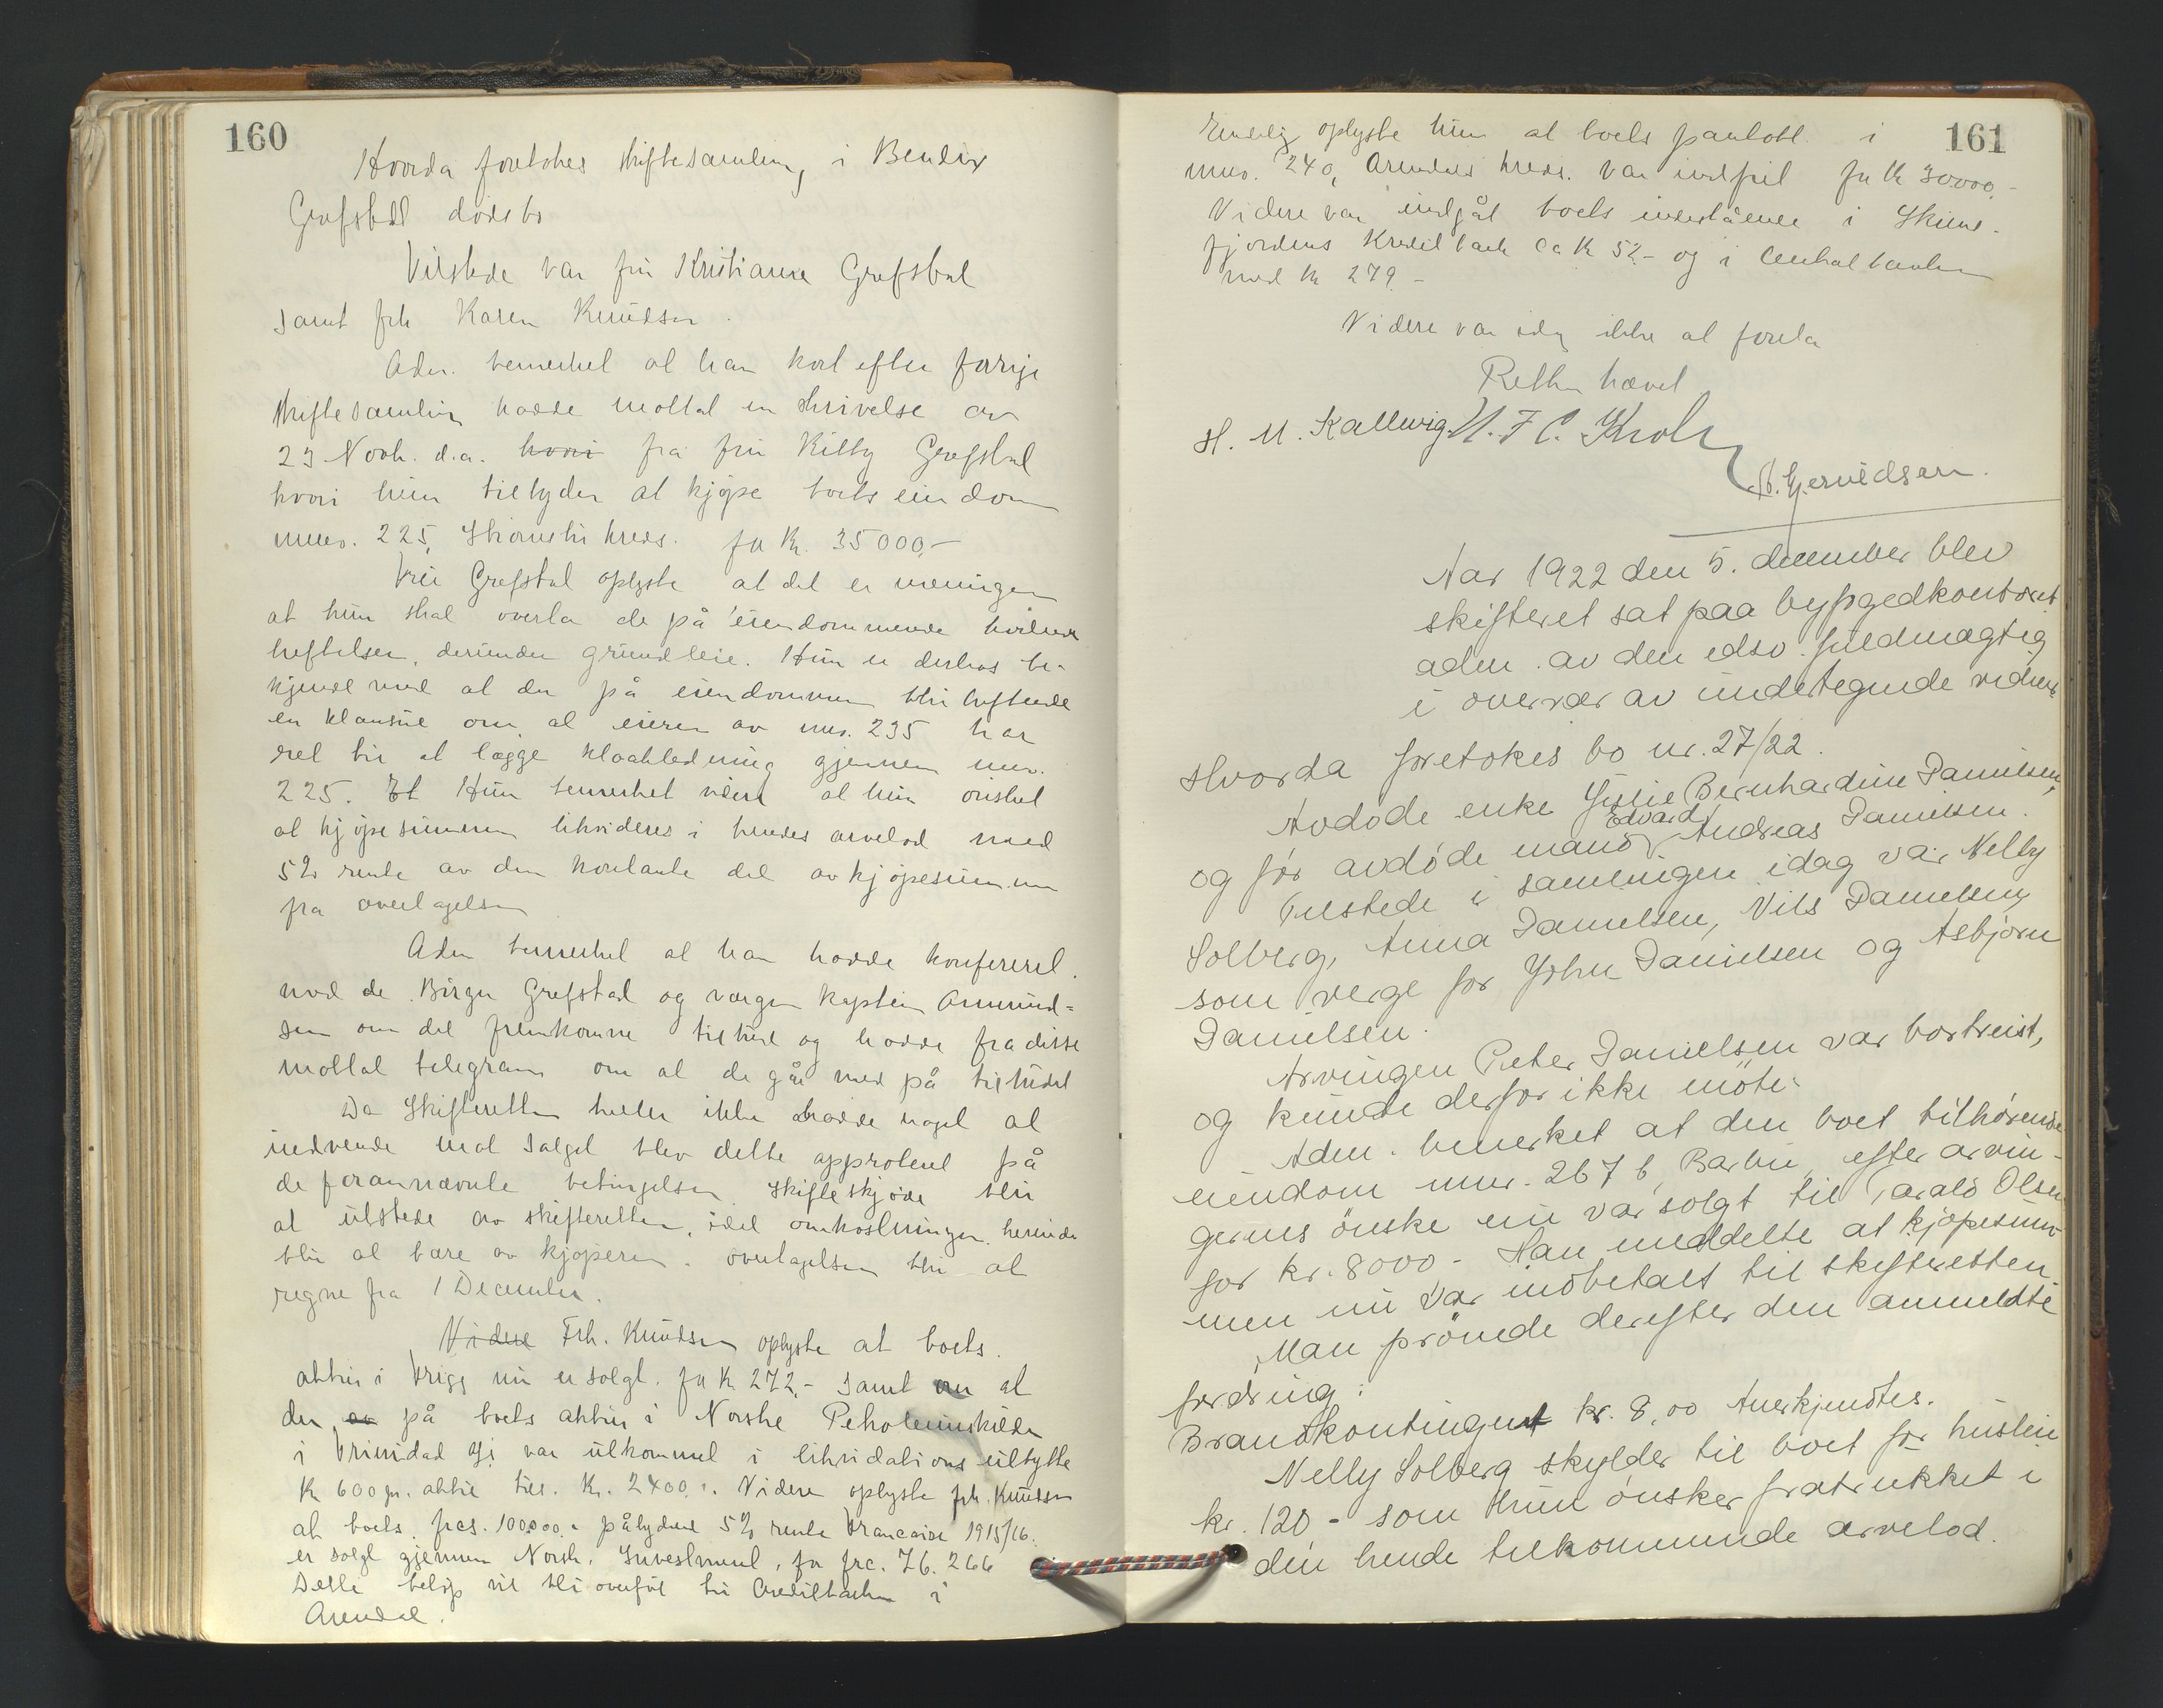 160
Hvorda foretokes skiftesamling i Bendix
Grefstad dødsbo
Tilstede var fru Kristiane Grefstad
samt frk Karen Knudsen.
Adm. bemerket at han kort efter forrige
skiftesamling hadde mottat en skrivelse av
23 Novb. d.a. hvori fra fru Kitty Grefstad
hvori hun tilbyder at kjøpe boets eiendom
mno. 225, Strømsbu kreds. for Kr. 35000,-
Fru Grefstad oplyste at det er meningen
at hun skal overta de på eiendommende hvilende
heftelser, derunder grundleie. Hun er derhos be-
kjendt med at der på eiendommen blir heftende
en klausul om at eieren av mno. 235 har
ret til at lægge kloakledning gjennem mno.
225. Et Hun bemerket videre at hun ønsket
at kjøpesummen likvideres i hendes arvelod med
5% rente av den kontante del av kjøpesummen
fra overtagelsen
Adm bemerket at han hadde konfereret
med de. Birger Grefstad og vergen kaptein Amund-
sen om det fremkomne tilbud og hadde fra disse
mottat telegram om at de går med på tilbudet
Da skifteretten heller ikke hadde noget at
indvende mot salget blev dette approbert på
de forannævnte betingelser. Skifteskjøde blir
at utstede av skifteretten, idet omkostningene herved
blir at bære av kjøperen. overtagelsen blir at
regne fra 1 December.
Videre Frk. Knudsen oplyste at boets
aktier i Frigg nu er solgt for kr 272,- samt om at
der av på boets aktier i Norske Petroleumskilder
i Trinidad A/S var utkommet i likvidations utbytte
Kr 600 pr. aktie tils. Kr. 2400,-. Videre oplyste frk. Knudsen
at boets frcs. 100.000.- pålydende 5% rente Francaise 1915/16
er solgt gjennem Norsk. Investment, for frc. 76.266
Dette beløp vil bli overført til Creditbanken i
Arendal.
161
Endelig oplyste hun at boets pantobl. i
mno. 240, Arendals kreds. var indfriet for kr 30000,-
Videre var indgåt boets indestående i Skiens-
fjordens Kreditbank ca kr 52,- og i Centralbanken
med kr 279.-
Videre var idag ikke at foreta
Retten hævet
H. M. Kallevig. N. F. C. Krok
A. Gjeruldsen.
Aar 1922 den 5. december blev
skifteret sat paa byfogedkontoret
adm. av den edsv. fuldmægtig
i overvær av undertegnede vidner
Hvorda foretokes bo nr. 27/22.
Avdøde enke Julie Bernhardine Danielsen,
og før avdøde mand Edvard Andreas Danielsen.
Tilstede i samlingen idag var Nelly
Solberg, Anna Danielsen, Nils Danielsen,
som verge for John Danielsen og Asbjørn
Danielsen.
Arvingen Peter Danielsen var bortreist,
og kunde derfor ikke møte.
Adm. bemerket at den boet tilhørende
eiendom mnr. 267 b, Barbu, efter arvin-
gernes ønske nu var solgt til Tarald Olsen
for kr. 8000 - Han meddelte at kjøpesum-
men nu var indbetalt til skifteretten.
Man prøvede derefter den anmeldte
fordring:
Brandkontingent kr. 8,00 Anerkjendtes.
Nelly Solberg skylder til boet for husleie
kr. 120 - som hun ønsker fratrukket i
den hende tilkommende arvelod.